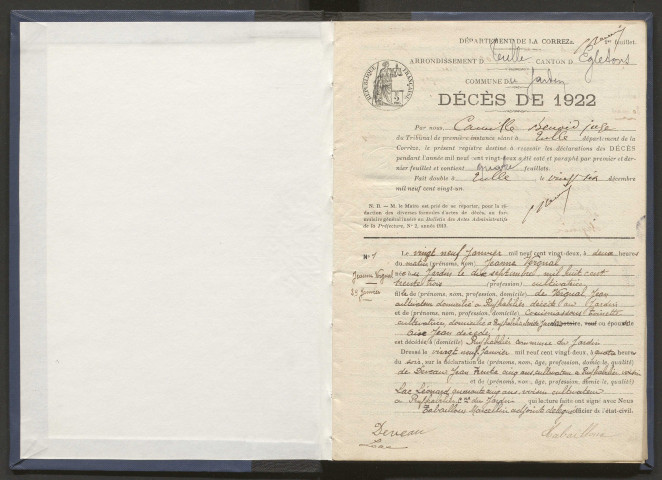 DÉPARTEMENT DE LA CORRÈZE. feuillet.
ARRONDISSEMENT D Tulle CANTON D Egletons
COMMUNE du Jardin
RÉPUBLIQUE FRANÇAISE
DÉCÈS DE 1922
Par nous Camille juge
du Tribunal de première instance séant à Tulle département de la
Corrèze, le présent registre destiné à recevoir les déclarations des DÉCÈS
pendant l'année mil neuf cent vingt-deux a été coté et paraphé par premier et der-
nier feuillet et contient quatre feuillets.
Fait double à Tulle , le vingt six décembre
mil neuf cent vingt-un.
N. B. — M. le Maire est prié de se reporter, pour la ré-
daction des diverses formules d'actes de décès, au for-
mulaire général inséré au Bulletin des Actes Administratifs
de la Préfecture, N° 2, année
N° 1
Jeanne Vergnal
29 Janvier
Le vingt neuf Janvier mil neuf cent vingt-deux, à deux heures
du matin (prénoms, nom) Jeanne Vergnal
née au Jardin le dix septembre mil huit cent
trente trois (profession) cultivatrice
fille de (prénoms, nom, profession, domicile) de Vergnal Jean
cultivateur domicilié à décédé au Jardin
et de (prénoms, nom, profession, domicile)
cultivatrice, domiciliée à
Jean décédé
est décédée à (domicile) commune du Jardin
Dressé le vingt neuf Janvier mil neuf cent vingt-deux, à quatre heures
du soir, sur la déclaration de (prénoms, nom, âge, profession, domicile, qualité)
de Deveau Jean trente cinq ans cultivateur à voisin
et de (prénoms, nom, âge, profession, domicile, qualité)
Lac Léonard quarante cinq ans, voisin cultivateur
à du Jardin qui lecture faite ont signé avec Nous
Tabaillou Marcellin adjoint délégué officier de l'état-civil.
Deveau
Lac
Tabaillou